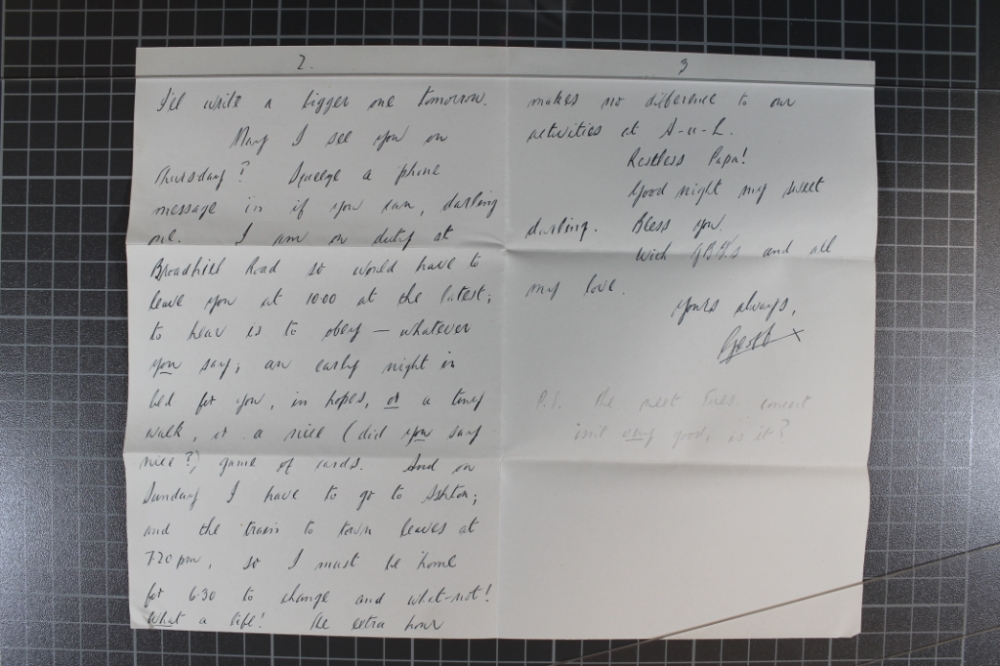 2.
I'll write a bigger one tomorrow.
May I see you on
Thursday? Squeeze a phone
message in if you can, darling
one. I am on duty at
Broadhill Road so would have to
leave you at 10.00 at the latest;
to hear is to obey — whatever
you say; an early night in
bed for you, in hopes, or a tiny
walk, or a nice (did you say
nice?) game of cards. And on
Sunday I have to go to Ashton;
and the train to town leaves at
7.20 pm, so I must be home
for 6.30 to change and what-not!
What a life! The extra hour
3
makes no difference to our
activities at A-u-L.
Restless Papa!
Good night my sweet
darling. Bless you.
With and all
my love.
Yours always,
Geoff x
P.S. The next Tues. concert
isn't very good, is it?